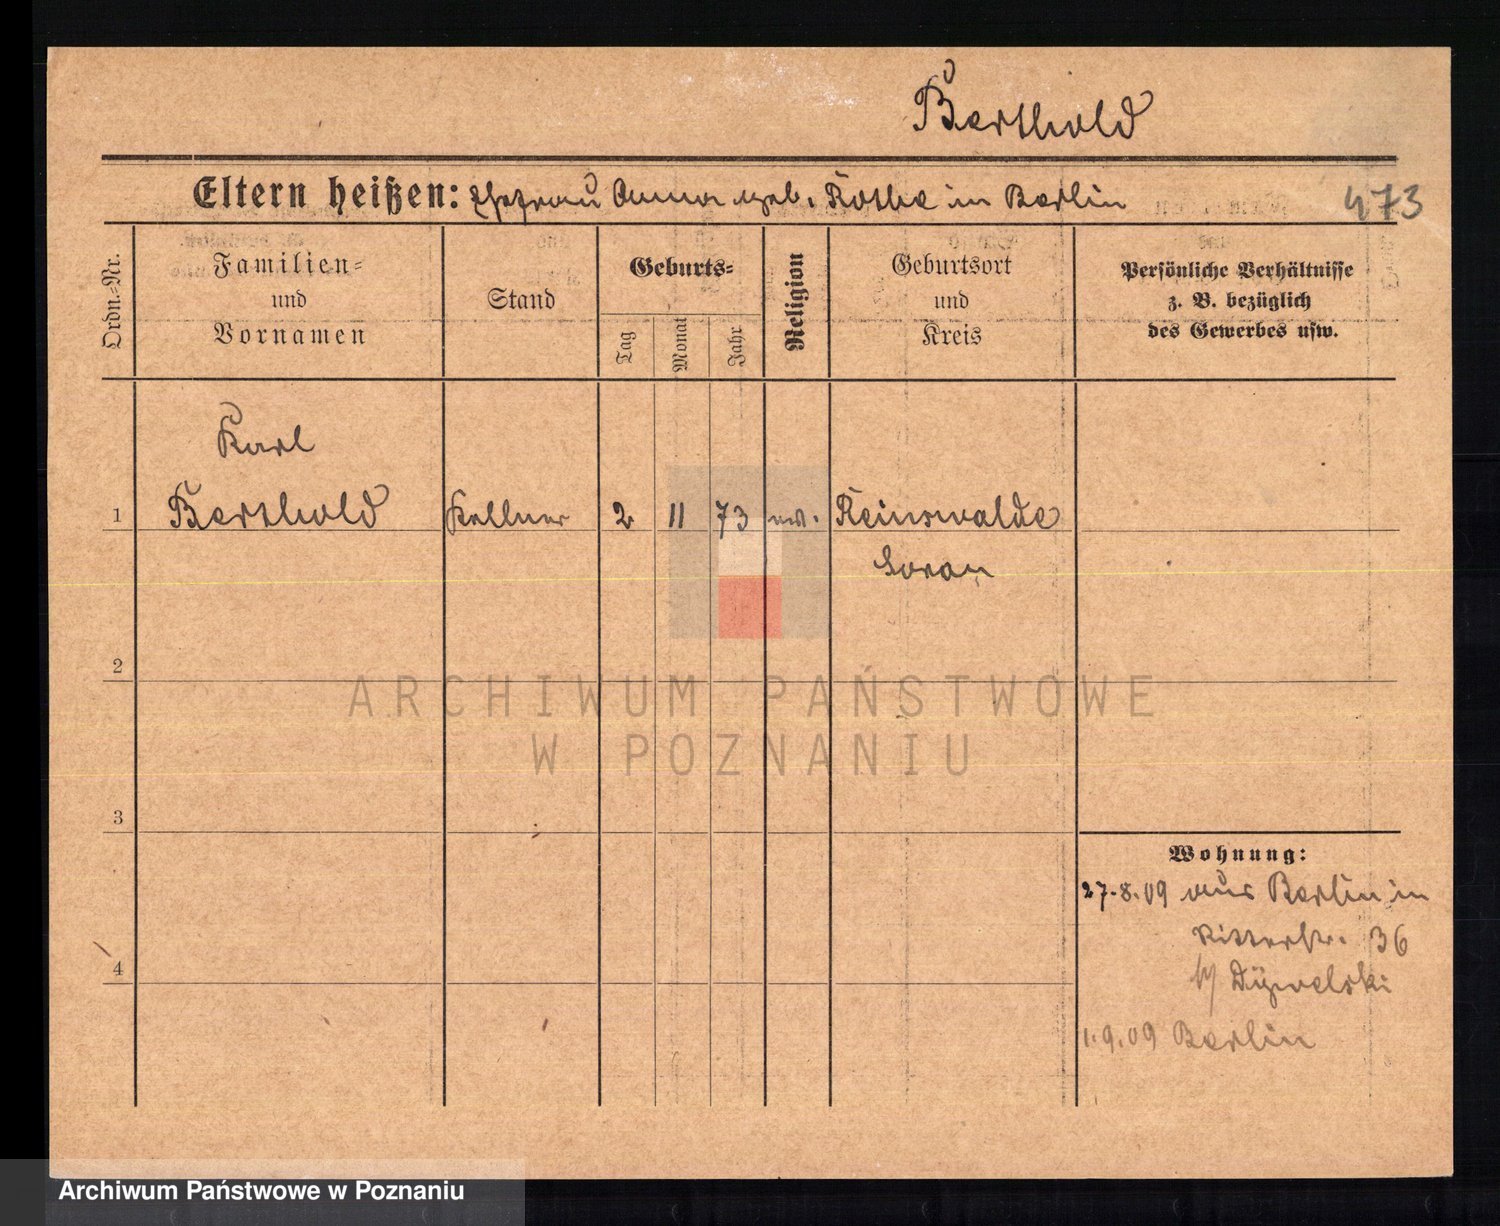 Berthold
Eltern heißen: Ehefrau Anna geb. Rothe in Berlin 473
Ordn.-Nr.
Familien-
und
Vornamen
Stand
Geburts-
Tag
Monat
Jahr
Religion
Geburtsort
und
Kreis
Persönliche Verhältnisse
z. B. bezüglich
des Gewerbes usw.
Karl
1 Berthold Kellner 2 11 73 ev. Reinswalde
Sorau
2
ARCHIWUM PAŃSTWOWE
W POZNANIU
3
Wohnung:
27.8.09 aus Berlin in
Ritterstr. 36
b/
4
1.9.09 Berlin
Archiwum Państwowe w Poznaniu